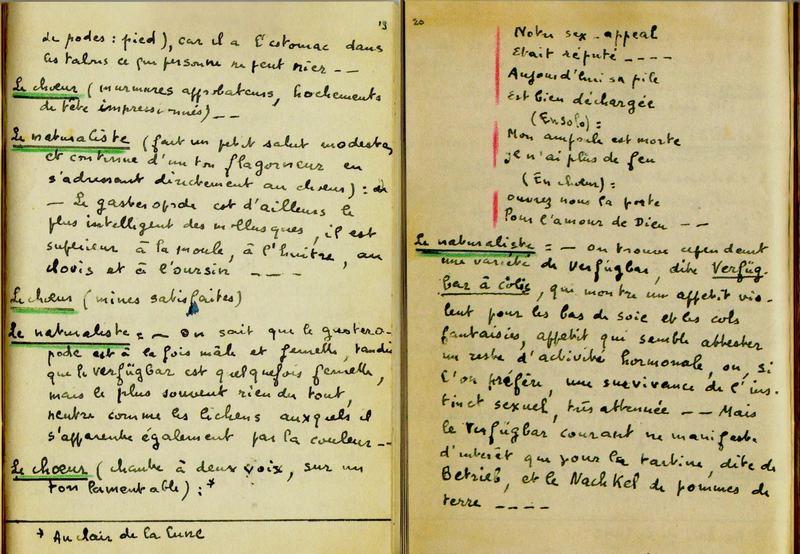 13
de podes : pied), car il a l'estomac dans
les talons ce que personne ne peut nier --
Le chœur (murmures approbateurs, hochements
de tête impressionnés) --
Le naturaliste (fait un petit salut modeste,
et continue d'un ton flagorneur en
s'adressant directement au chœur) :
- Le gasteropode est d'ailleurs le
plus intelligent des mollusques, il est
supérieur à la moule, à l'huître, au
clovis et à l'oursin ----
Le chœur (mines satisfaites)
Le naturaliste : - on sait que le gastero-
pode est à la fois mâle et femelle, tandis
que le verfügbar est quelquefois femelle,
mais le plus souvent rien du tout,
neutre comme les lichens auxquels il
s'apparente également par la couleur --
Le chœur (chante à deux voix, sur un
ton lamentable) : *
* Au clair de la lune
20
Notre sex-appeal
Etait réputé ----
Aujourd'hui sa pile
Est bien déchargée
(En solo) :
Mon ampoule est morte
je n'ai plus de feu
(En chœur) :
ouvrez nous la porte
Pour l'amour de Dieu --
Le naturaliste : - on trouve cependant
une variété de verfügbar, dite Verfüg-
bar à colis, qui montre un appétit vio-
lent pour les bas de soie et les cols
fantaisies, appétit qui semble attester
un reste d'activité hormonale, ou, si
l'on préfère, une survivance de l'ins-
tinct sexuel, très attenuée -- Mais
le Verfügbar courant ne manifeste
d'intérêt que pour la tartine, dite de
Betrieb, et le Nachkel de pommes de
terre ----